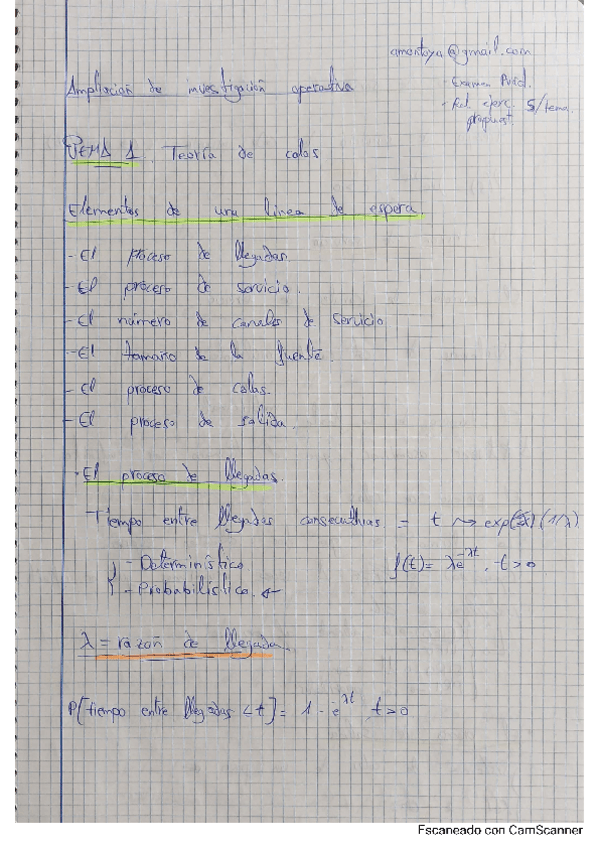 amontoya@gmail.com
- Examen Parcl.
Ampliación de investigación operativa
ejerc. 5/tema
propuest.
TEMA 1. Teoría de colas
Elementos de una línea de espera.
- El proceso de llegadas.
- El proceso de servicio.
- El número de canales de servicio
- El tamaño de la fuente.
- El proceso de colas.
- El proceso de salida.
· El proceso de llegadas.
Tiempo entre llegadas consecutivas = t ⇝ exp(λ) (1/λ)
- Determinístico
f(t) = λe^-λt, t>0
- Probabilístico. ←
λ = razón de llegada.
P[tiempo entre llegadas < t] = 1 - e^-λt t>0
Escaneado con CamScanner